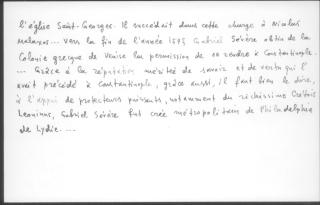 l'église Saint-Georges. Il succédait dans cette charge à Nicolas
Malaxos... Vers la fin de l'année 1575 Gabriel Sévère obtin de la
Colonie grecque de Venise la permission de se rendre à Constantinople.
... Grâce à la réputation méritée de savoir et de vertu qui l'
avait précédé à Constantinople, grâce aussi, il faut bien le dire,
à l'appui de protecteurs puissants, notamment du richissime Crétois
Léoninus, Gabriel Sévère fut créé métropolitain de Philadelphie
de Lydie. ...